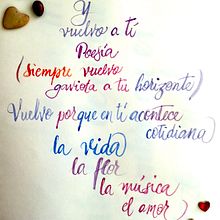 Y
vuelvo a ti
Poesía
(siempre vuelvo
gaviota a tu horizonte)
Vuelvo porque en ti acontece
cotidiana
la vida
la flor
la música
el amor)